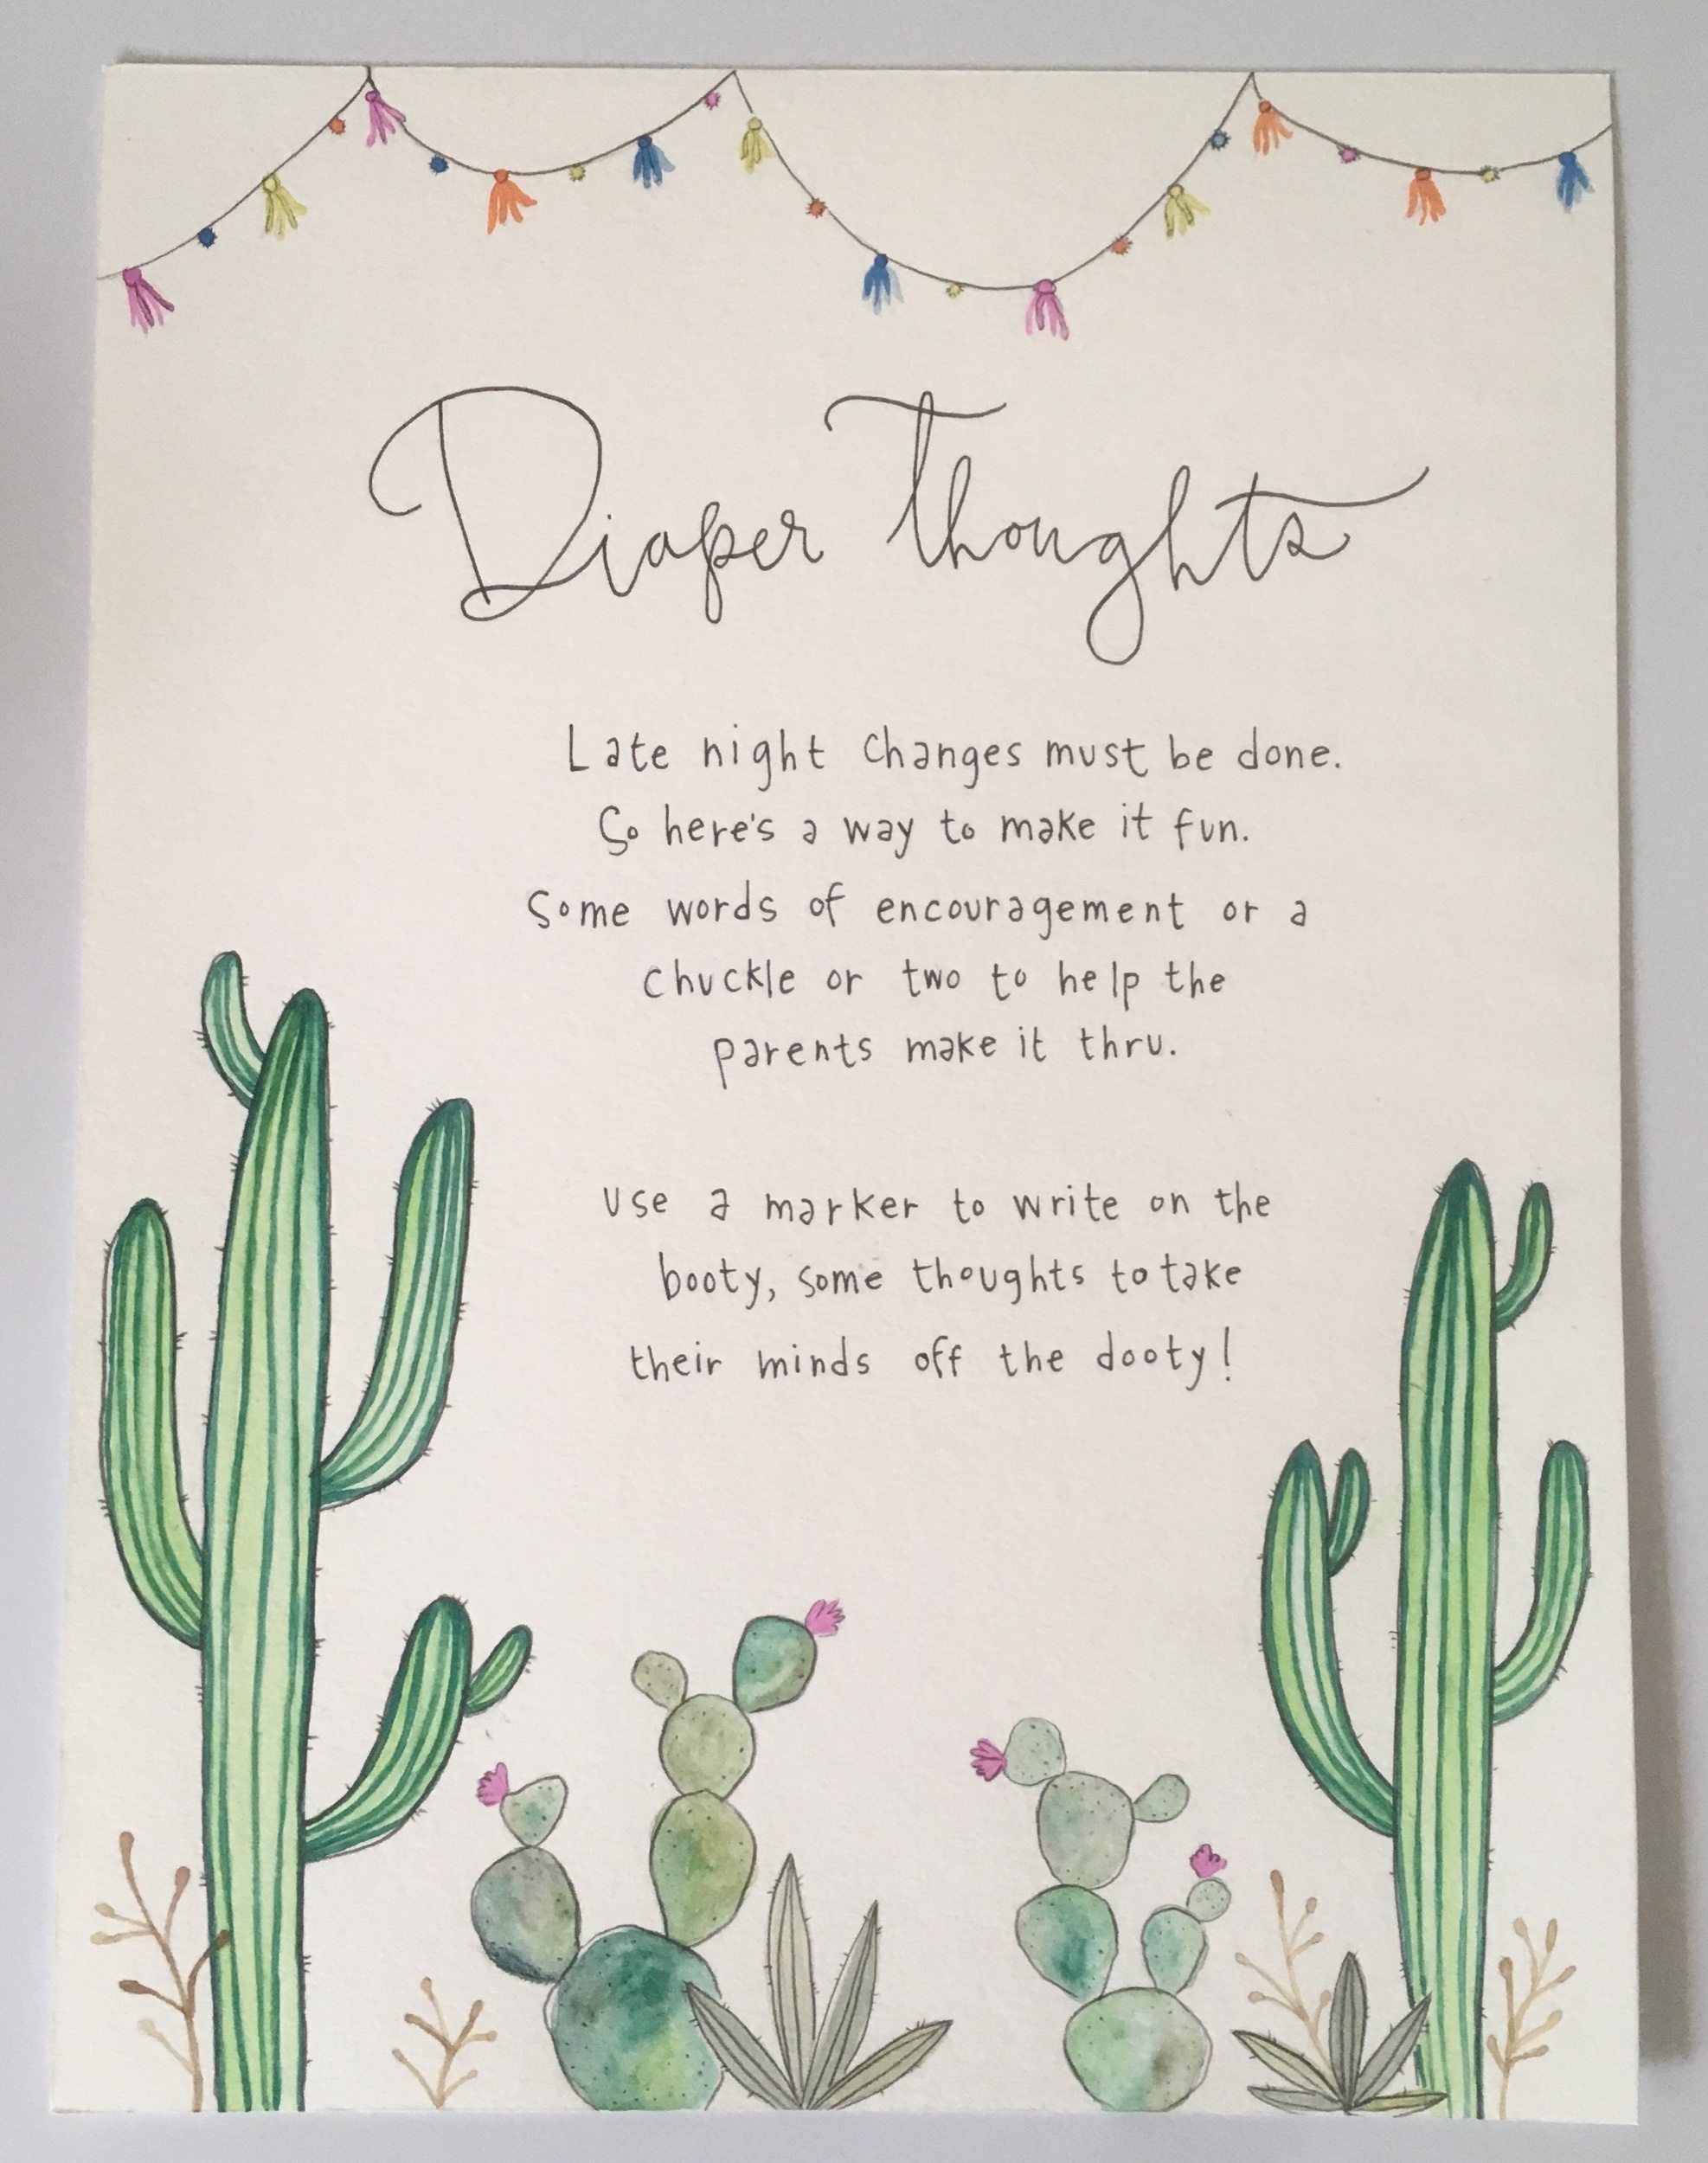 Diaper Thoughts
Late night changes must be done.
So here's a way to make it fun.
Some words of encouragement or a
chuckle or two to help the
parents make it thru.
use a marker to write on the
booty, some thoughts to take
their minds off the dooty!